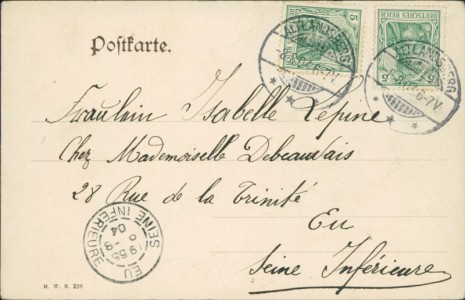 Postkarte.
5
DEUTSCHES REICH
5
ALTLANDSBERG
6-7V.
ALTLANDSBERG
6-7V.
Fräulein Isabelle Lepine
Chez Mademoiselle Debeauvais
28 Rue de la Trinité
Eu
Seine Inférieure
EU
SEINE INFERIEURE
04
M. W. B.